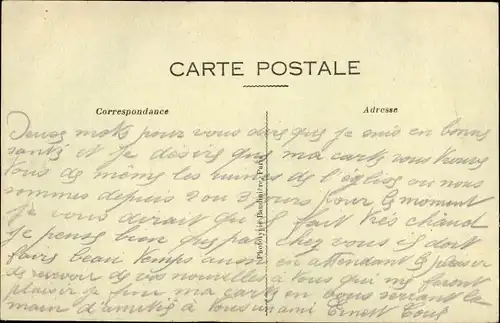 CARTE POSTALE
Correspondance
Adresse
Deux mots pour vous dire que je suis en bonne
santé et je désire que ma carte vous trouve
tous de même les ruines de l'église ou nous
sommes depuis 2 ou 3 jours pour le moment
je vous dirait qu'il fait très chaud
je pense bien que par chez vous il doit
faire beau temps aussi en attendant le plaisir
de recevoir de vos nouvelles à tous qui me feront
plaisir je finis ma carte en vous serrant la
main d'amitié à tous un ami Ernest
Phototypie Baudinière, Paris